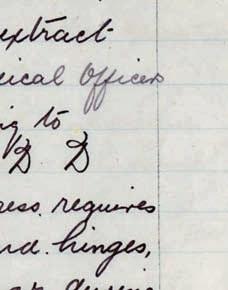 extract
ical Officer
g to
D D
ess. requires
nd. hinges,